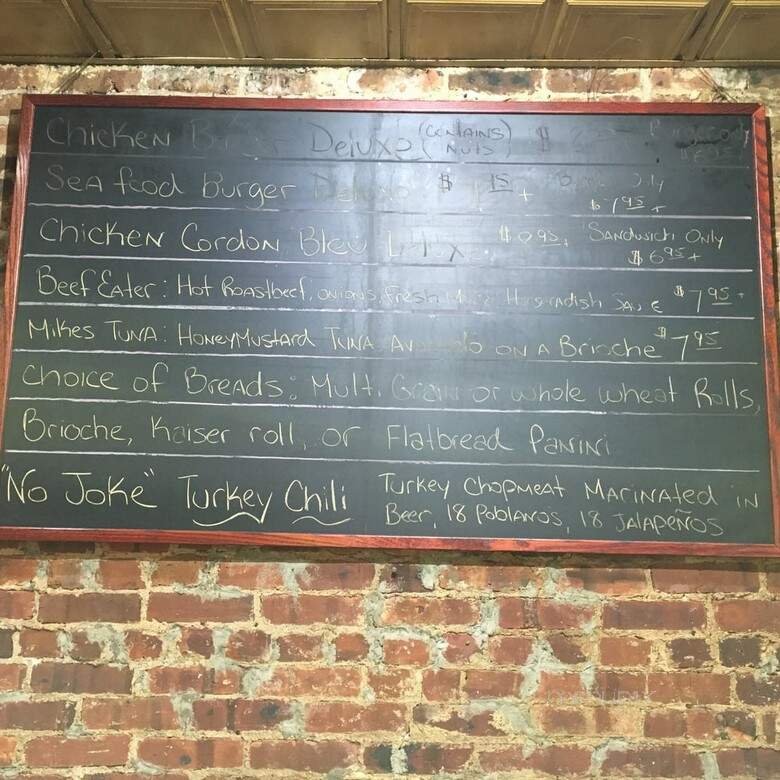 Chicken Deluxe (CONTAINS NUTS) $
Sea food Burger $ 15 + Only $ 7 95 +
Chicken Cordon Bleu Sandwich Only $ 6 95 +
Beef Eater: Hot Roastbeef, onions, fresh Horseradish $ 7 95
Mikes Tuna: HoneyMustard Tuna ON A Brioche $ 7 95
Choice of Breads: Multi Grain or whole wheat Rolls,
Brioche, Kaiser roll, or Flatbread Panini
"No Joke" Turkey Chili Turkey Chopmeat Marinated in
Beer, 18 Poblanos, 18 Jalapeños